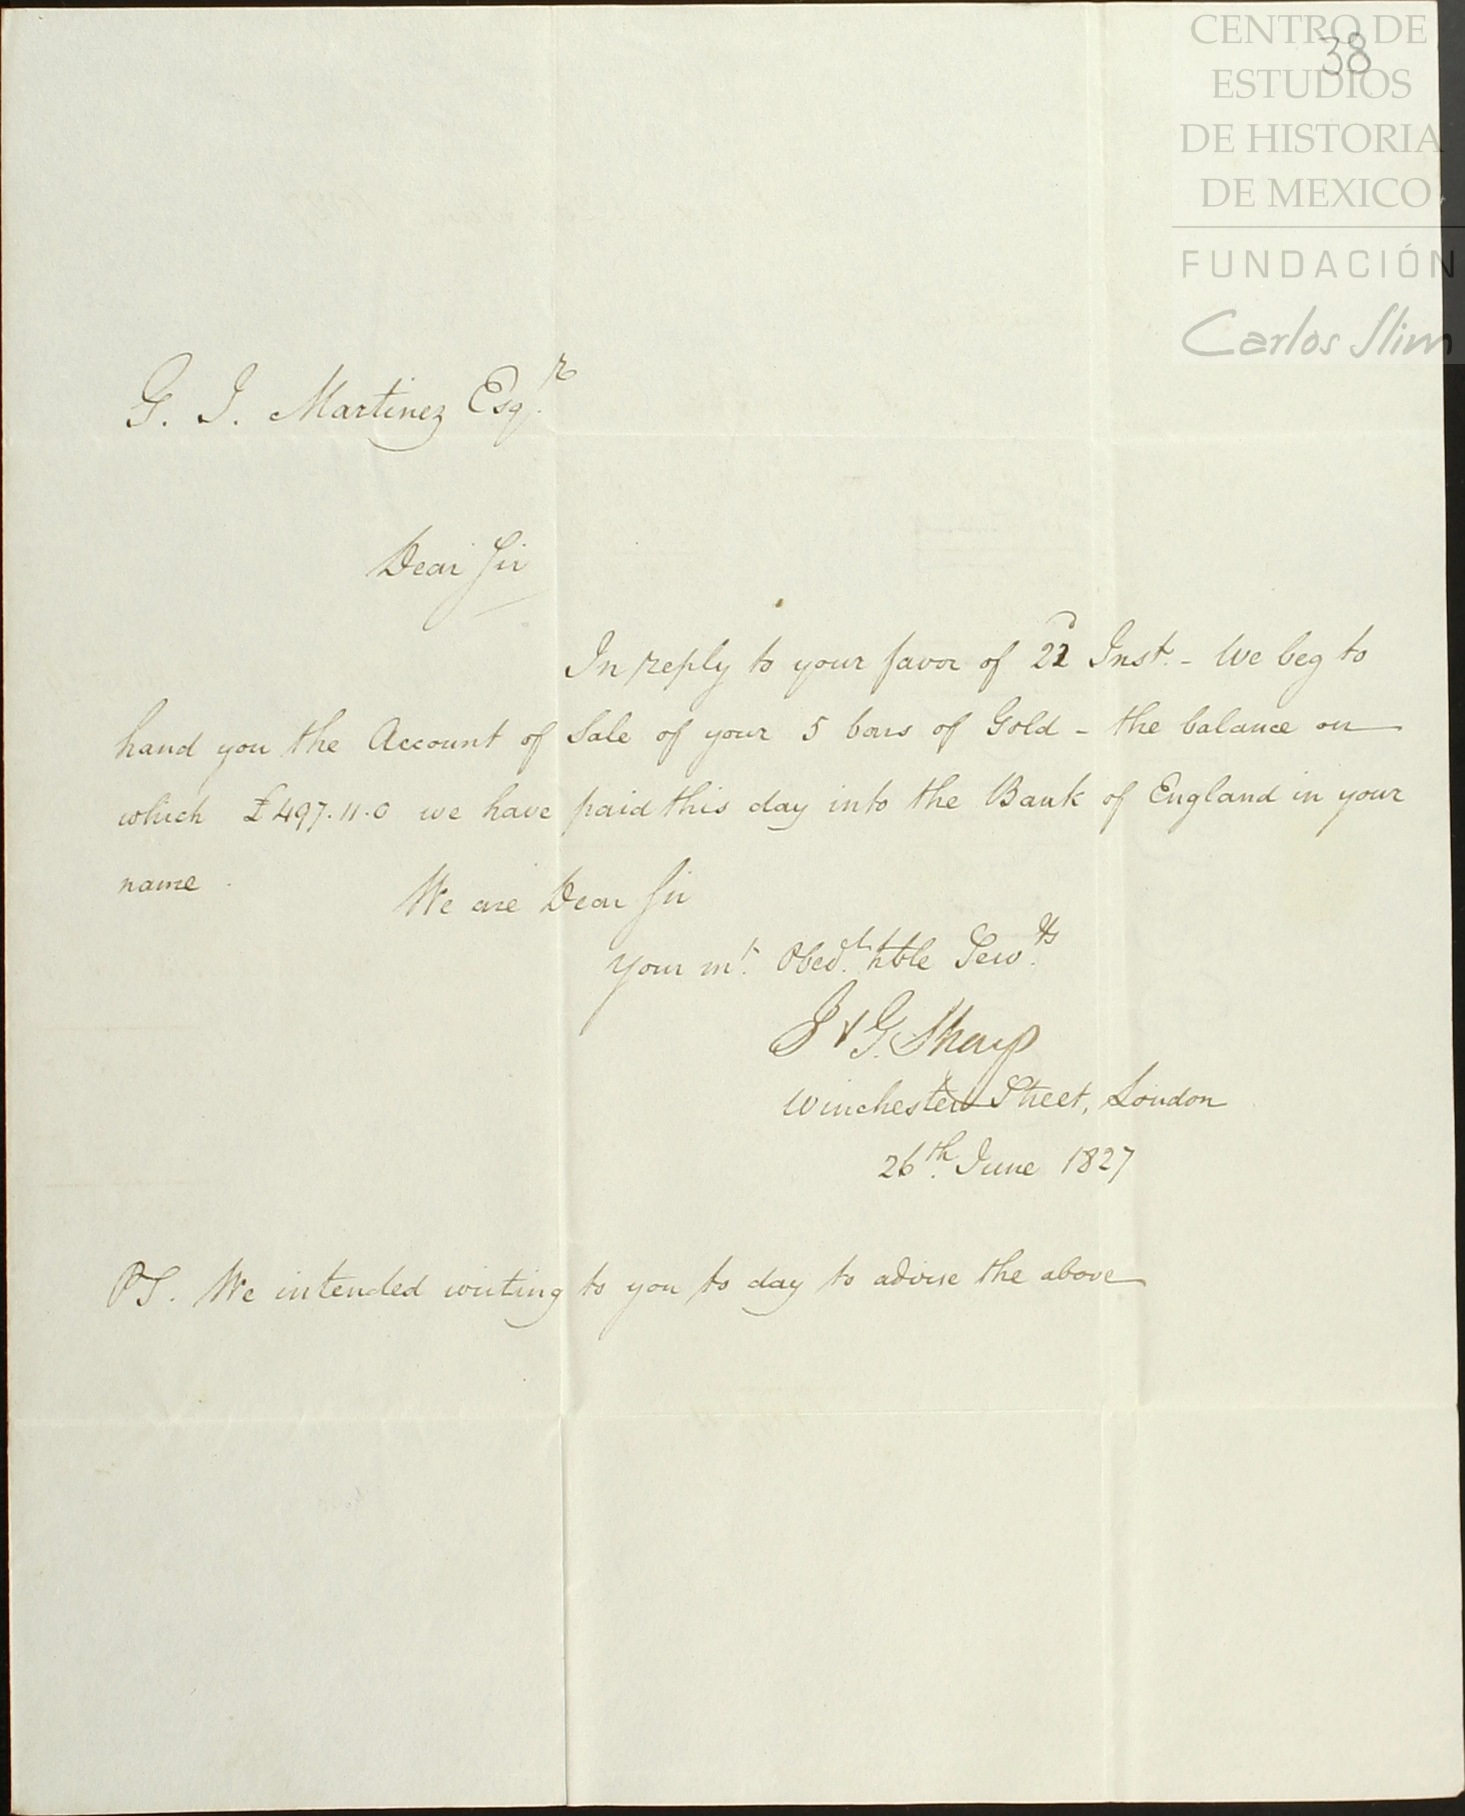 CENTRO DE
38
ESTUDIOS
DE HISTORIA
DE MEXICO
FUNDACIÓN
Carlos Slim
G. J. Martinez Esqr.
Dear Sir
In reply to your favor of 22 Inst. - We beg to
hand you the Account of Sale of your 5 bars of Gold - the balance on
which £497.11.0 we have paid this day into the Bank of England in your
name.
We are Dear Sir
Your mt. Obedt. hble Servts.
J & G. Sharp
Winchester Street, London
26th. June 1827
PS. We intended writing to you to day to advise the above